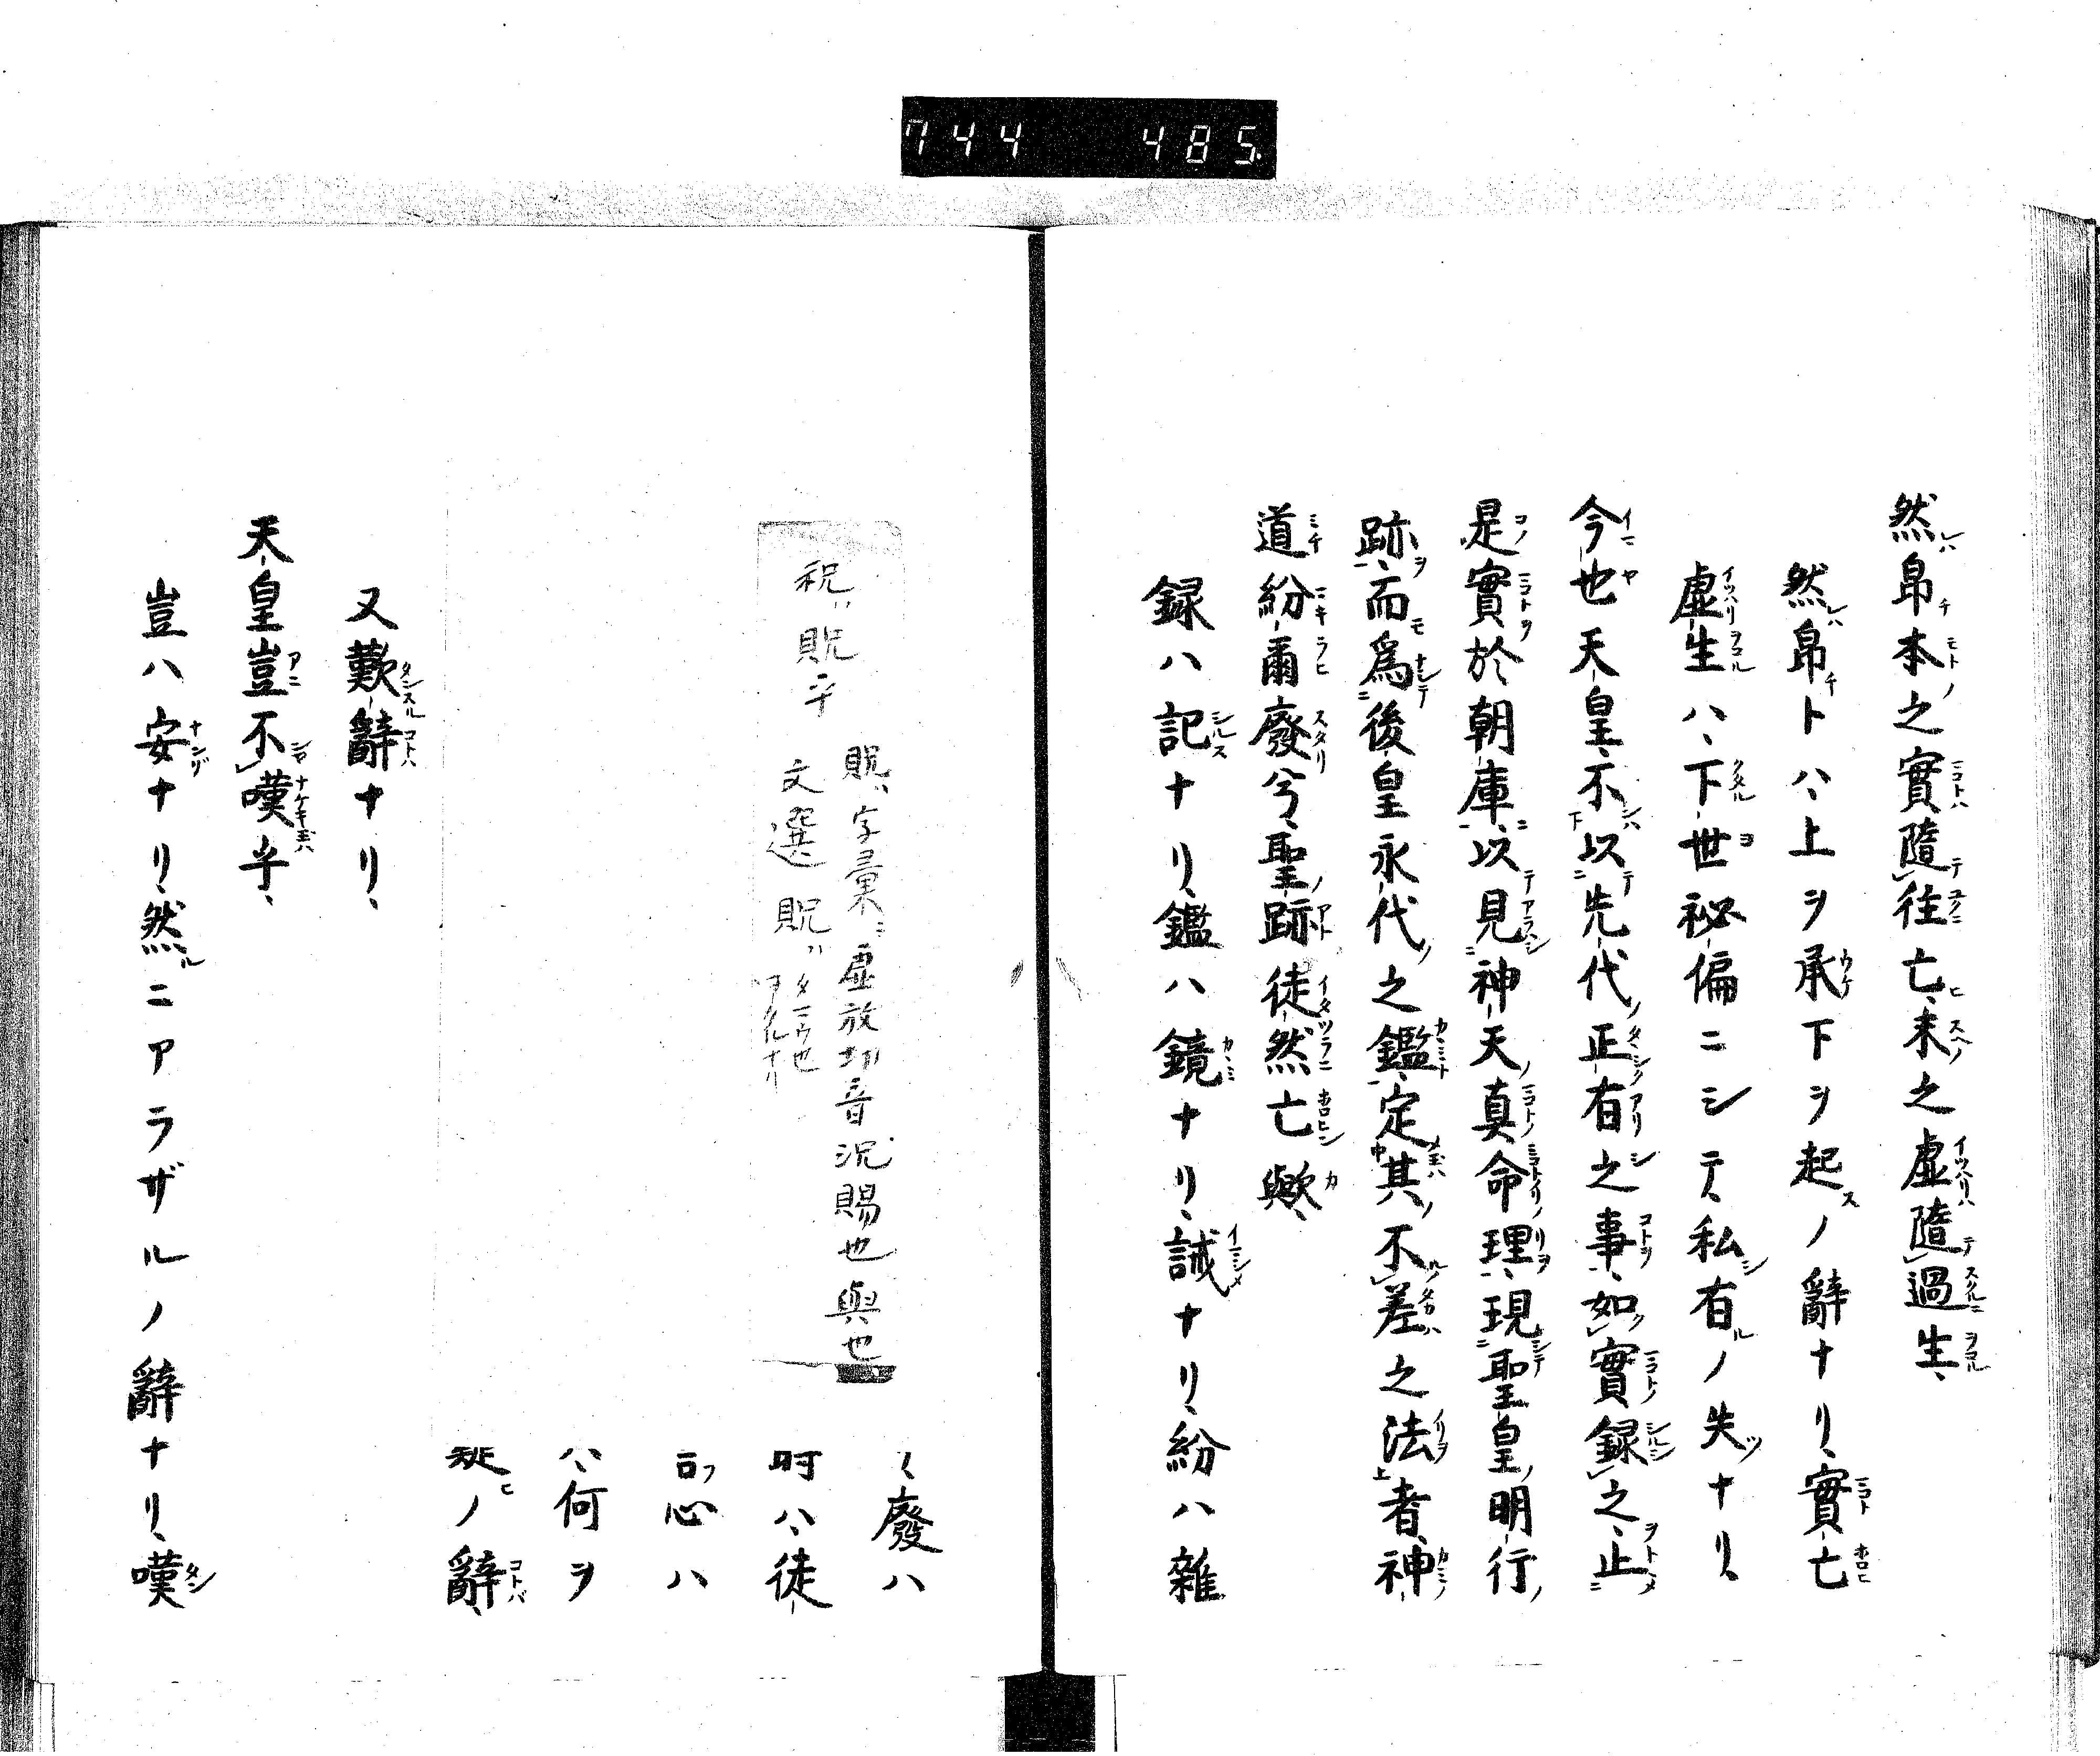 744 485
然帛本之實隨往亡、末之虛隨過生、
然帛トハ、上ヲ承下ヲ起ノ辭ナリ、實亡
虛生ハ、下世祕偏ニシテ、私有ノ失ナリ、
今也天皇、不以先代正有之事、如實録之、止
是實於朝庫、以見神天真命理、現聖皇明行
跡、而爲後皇永代之鑑、定其不差之法者、神
道紛爾廢兮、聖跡徒然亡歟、
録ハ記ナリ、鑑ハ鏡ナリ、誡ナリ、紛ハ雜
廢ハ
時ハ、徒
心ハ
ハ、何ヲ
ノ辭、
貺、字彙ニ虛放切音況賜也與也
祝ハ貺乎 文選貺ハタマウ也
又歎辭ナリ、
天皇豈不嘆乎、
豈ハ安ナリ、然ニアラザルノ辭ナリ、嘆